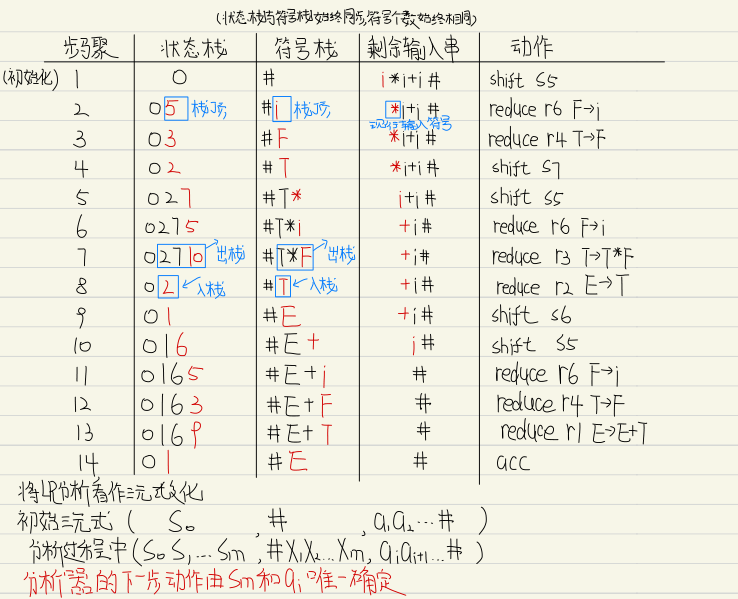 (状态栈与符号栈始终同步,符号个数始终相同)
步骤 状态栈 符号栈 剩余输入串 动作
(初始化) 1 0 # i*i+i# shift S5
2 05 栈顶 #i 栈顶 *i+i# reduce r6 F→i
现行输入符号
3 03 #F *i+i# reduce r4 T→F
4 02 #T *i+i# shift S7
5 027 #T* i+i# shift S5
6 0275 #T*i +i# reduce r6 F→i
7 02710 出栈 #T*F 出栈 +i# reduce r3 T→T*F
8 02 入栈 #T 入栈 +i# reduce r2 E→T
9 01 #E +i# shift s6
10 016 #E+ i# shift S5
11 0165 #E+i # reduce r6 F→i
12 0163 #E+F # reduce r4 T→F
13 0169 #E+T # reduce r1 E→E+T
14 01 #E # acc
将LR分析看作三元式变化
初始三元式 ( S₀ , # , a₁a₂…# )
分析过程中 (S₀S₁…Sm, #X₁X₂…Xm, aiai+1…#)
分析器的下一步动作由Sm和ai唯一确定